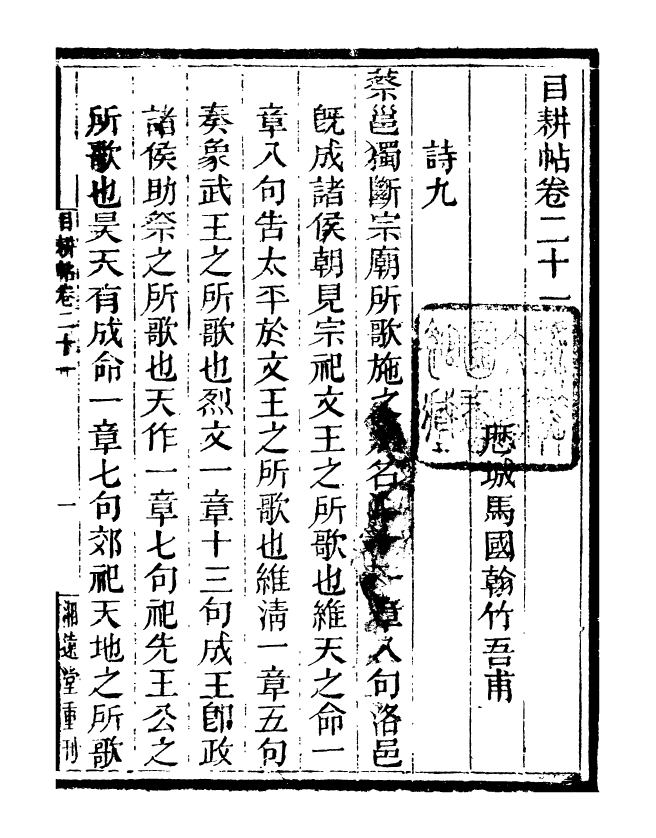 目耕帖卷二十一
歷城馬國翰竹吾甫
詩九
蔡邕獨斷宗廟所歌施之名一章八句洛邑
旣成諸侯朝見宗祀文王之所歌也維天之命一
章八句告太平於文王之所歌也維淸一章五句
奏象武王之所歌也烈文一章十三句成王卽政
諸侯助祭之所歌也天作一章七句祀先王公之
所歌也昊天有成命一章七句郊祀天地之所歌
目耕帖卷二十一
一
湘遠堂重刊